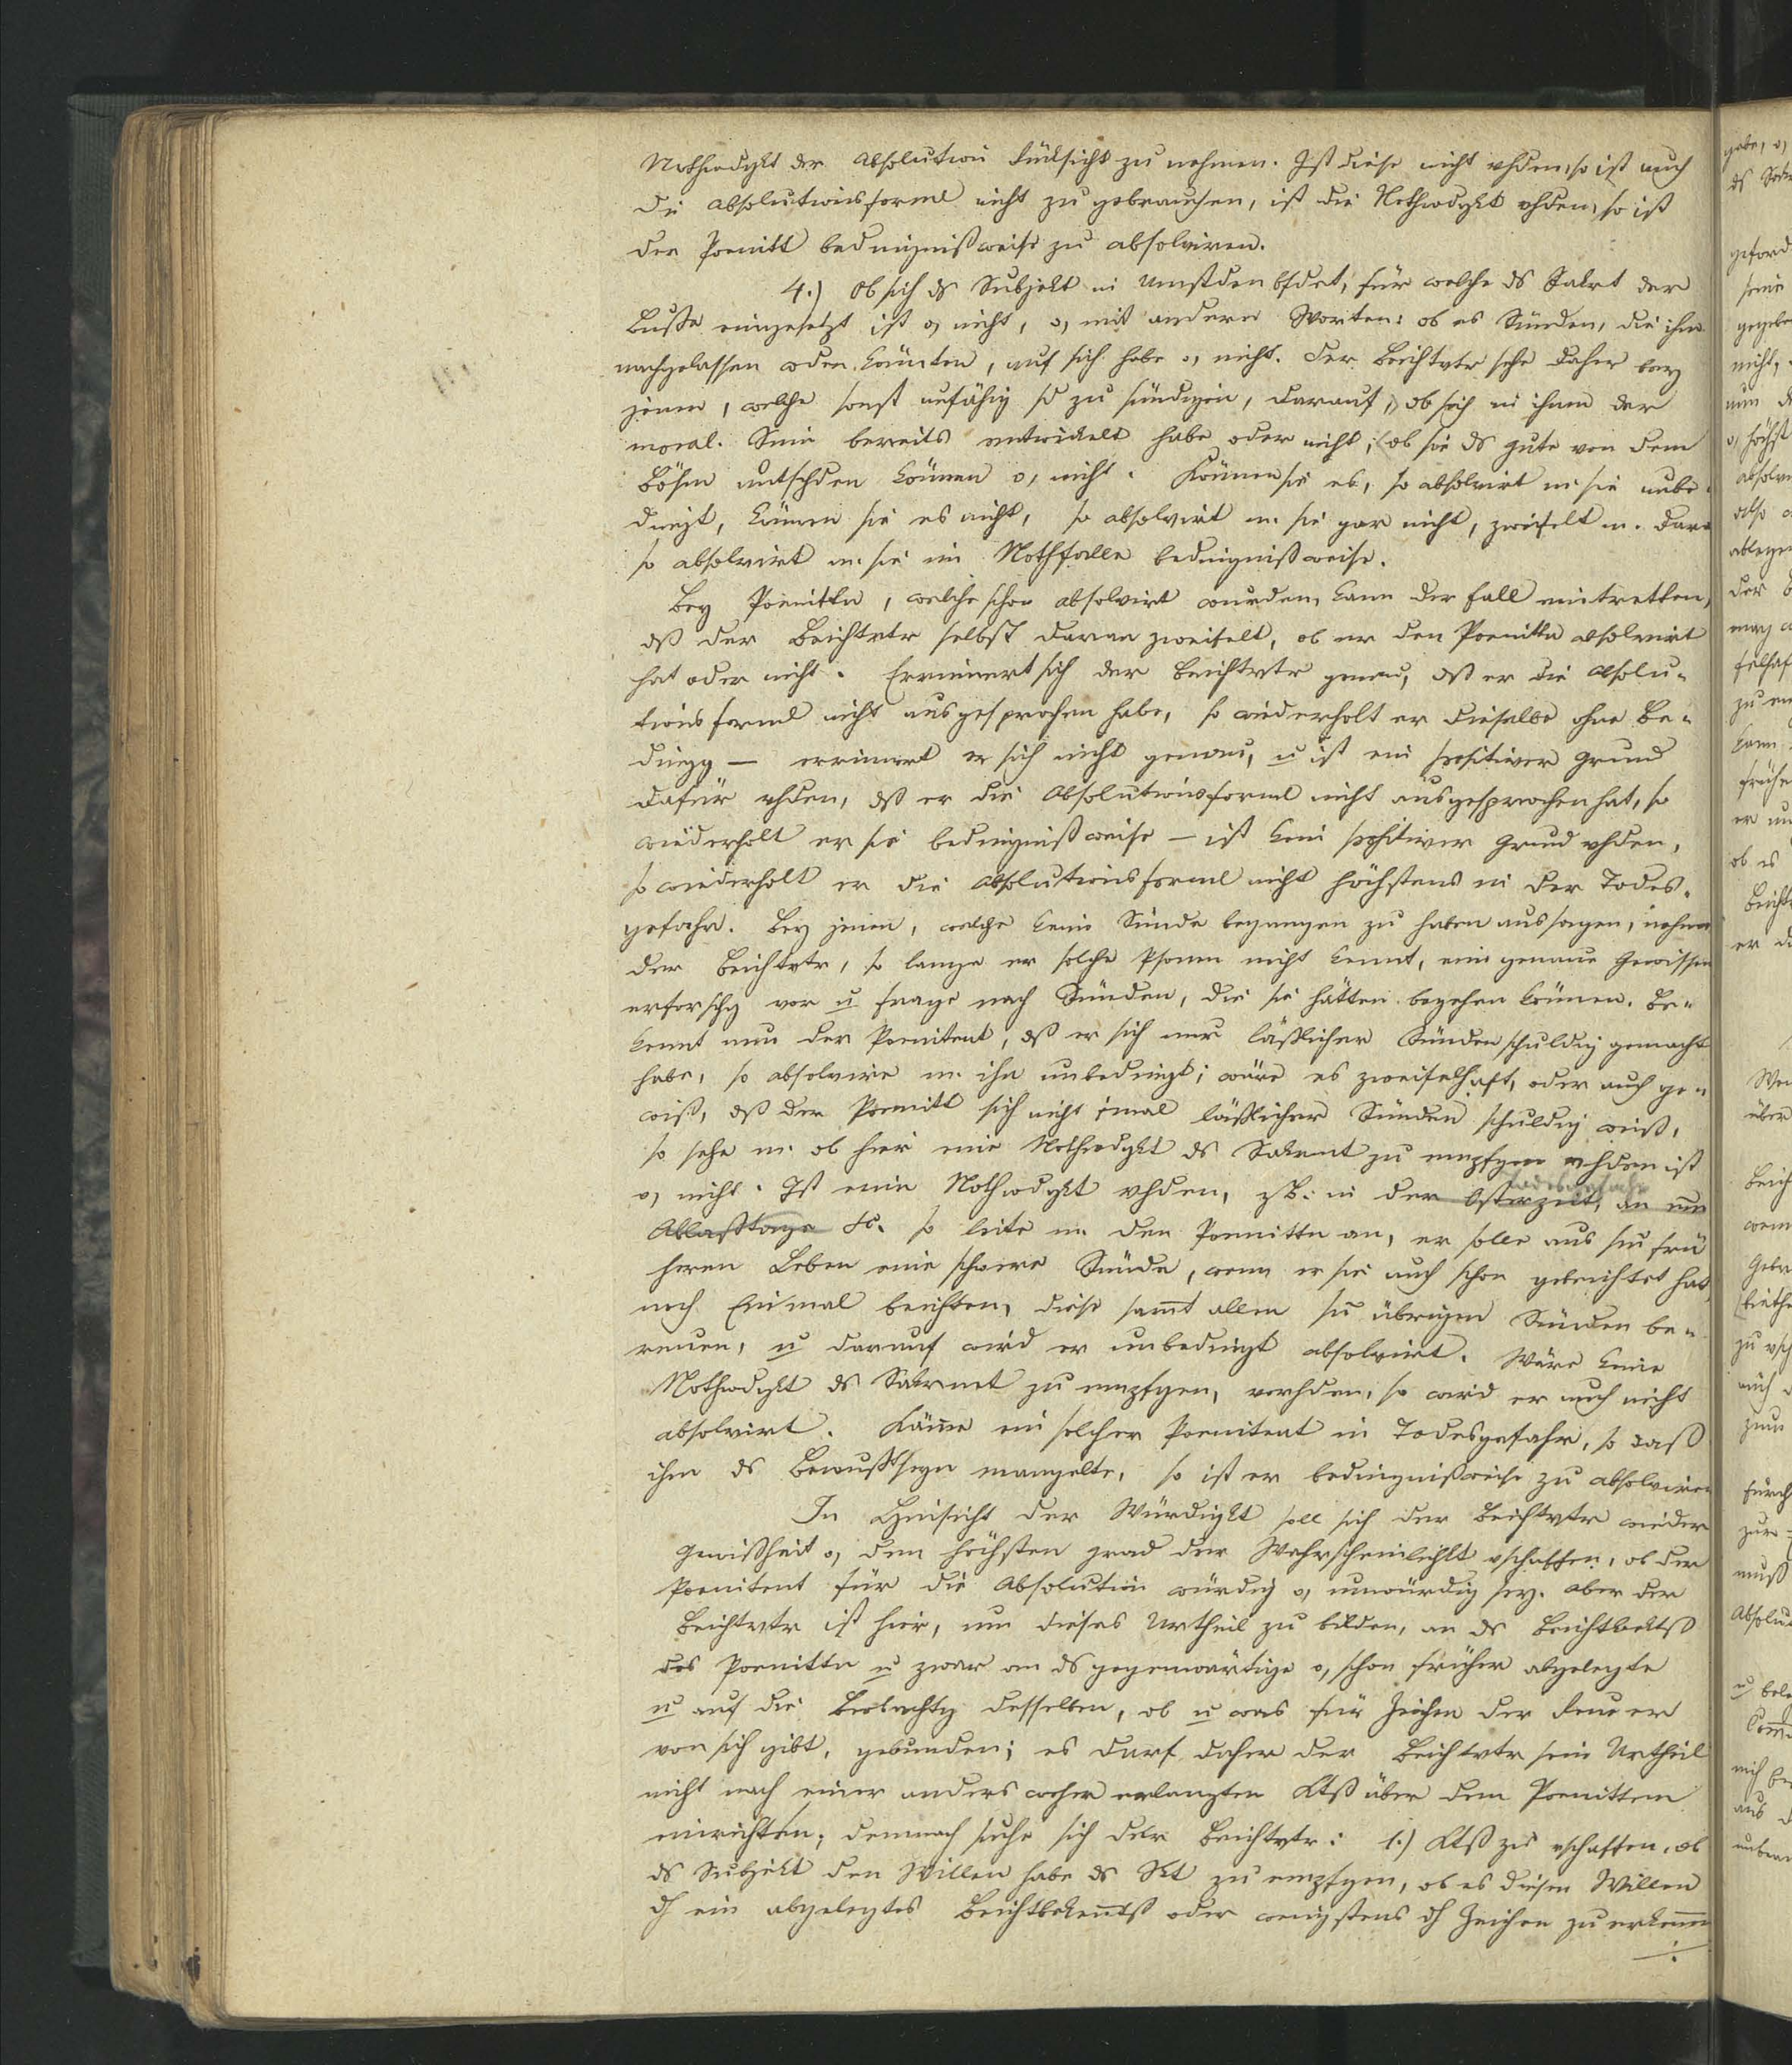 Nothwdgkt der Absolution Rücksicht zu nehmen. Ist diese nicht vhden, so ist auch
die Absolutionsforml nicht zu gebrauchen, ist die Nothwdgkt vhden, so ist
der Poenitt bedingnißweise zu absolviren.
4.) Ob sich ds Subjekt in Umstden bfdet, für welche ds Sakrt der
Buße eingesetzt ist o, nicht, o, mit andern Worten: ob es Sünden, die ihm
nachgelassen wden könnten, auf sich habe o, nicht. Der Beichtvtr sehe daher bey
jenen, welche sonst unfähig sd zu sündigen, darauf, ob sich in ihnen der
moral. Sinn bereits entwickelt habe oder nicht; (ob sie ds gute von dem
Bösen untschden können o, nicht. Können sie es, so absolvirt m. sie unbe-
dingt, können sie es nicht, so absolvirt m. sie gar nicht, zweifelt m. dara
so absolvirt m. sie im Nothfalle bedingnißweise.
Bey Poenittn, welche schon absolvirt wurden, kann der Fall eintretten,
dß der Beichtvtr selbst daran zweifelt, ob er den Poenittn absolvirt
hat oder nicht. Errinnert sich der Beichtvtr genau, dß er die Absolu-
tionsforml nicht ausgesprochen habe, so wiederholt er dieselbe ohne Be-
dingg — errinnert er sich nicht genau, u ist ein positiver Grund
dafür vhden, dß er die Absolutionsforml nicht ausgesprochen hat, so
wiederholt er sie bedingnißweise — ist kein positiver Grund vhden,
so wiederholt er die Absolutionsforml nicht höchstens in der Todes-
gefahr. Bey jenen, welche keine Sünde begangen zu haben aussagen, nehme
der Beichtvtr, so lange er solche Psonen nicht kennt, eine genaue Gewissen
erforschg vor u frage nach Sünden, die sie hätten begehen können. Be-
kennt nun der Poenitent, dß er sich nur läßlicher Sünden schuldig gemacht
habe, so absolvire m. ihn unbedingt; wäre es zweifelhaft, oder auch ge-
wiß, dß der Poenitt sich nicht 1mal läßlicher Sünden schuldig weiß,
so sehe m. ob hier eine Nothwdgkt ds Sakrmt zu empfgen vhden ist
o, nicht. Ist eine Nothwdgkt vhden, zB. in der Osterzeit, an
Todesgefahr
Ablaßtage &c. so leite m. den Poenittn an, er solle aus sn frü
heren Leben eine schwere Sünde, wenn er sie auch schon gebeichtet hat,
noch Einmal beichten, diese sammt allen sn übrigen Sünden be-
reuen, u darauf wird er unbedingt absolvirt. Wäre keine
Nothwdgkt ds Sakrmt zu empfgen, vorhden, so wird er auch nicht
absolvirt. Käme ein solcher Poenitent in Todesgefahr, so daß
ihm ds Bewußtseyn mangelte, so ist er bedingnißweise zu absolviren
In Hinsicht der Würdigkt soll sich der Beichtvtr wieder
Gewißheit o, den höchsten Grad der Wahrscheinlichkt vschaffen, ob der
Poenitent für die Absolution würdig o, unwürdig sey. Aber der
Beichtvtr ist hier, um dieses Urtheil zu bilden, an ds Beichtbektß
des Poenittn u zwar an ds gegenwärtige o, schon früher abgelegte
u auf die Beobachtg desselben, ob u was für Zeichen der Reue er
von sich gibt, gebunden; es darf daher der Beichtvtr sein Urtheil
nicht nach einer anders woher erlangten Ktß über den Poenittem
einrichten; demnach suche sich der Beichtvtr: 1.) Ktß zu vschaffen, ob
ds Subjekt den Willen habe ds Skt zu empfgen, ob es diesen Willen
dh ein abgelegtes Beichtbekenntß oder wenigstens dh Zeichen zu erkennen